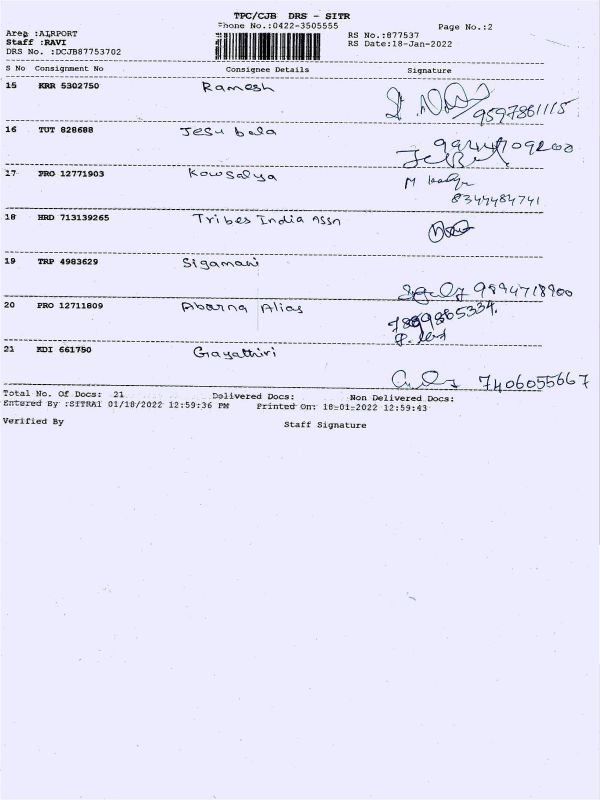 TPC/CJB DRS - SITR
Phone No.:0422-3505555
Page No.:2
Area :AIRPORT
Staff :RAVI
DRS No. :DCJB87753702
RS No.:877537
RS Date:18-Jan-2022
S No Consignment No Consignee Details Signature
15 KRR 5302750 Ramesh
9597861115
16 TUT 828688 Jesu bala
17 PRO 12771903 Kowsalya
8344484741
18 HRD 713139265 Tribes India Assn
19 TRP 4983629 Sigamani
9894718900
20 PRO 12711809 Abarna Alias
21 KDI 661750 Gayathiri
7406055667
Total No. Of Docs: 21 Delivered Docs: Non Delivered Docs:
Entered By :SITRA1 01/18/2022 12:59:36 PM Printed On: 18-01-2022 12:59:43
Verified By Staff Signature